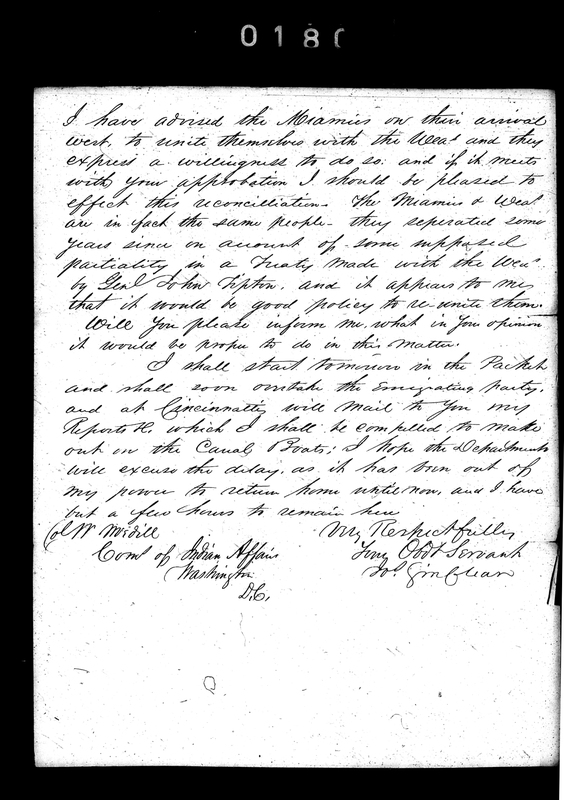 0180
I have advised the Miamies on their arrival
west, to unite themselves with the Weas and they
express a willingness to do so. and if it meets
with your approbation I should be pleased to
effect this reconcilliation. The Miamies & Weas
are in fact the same people - they seperated some
years since on account of some supposed
partiality in a Treaty made with the Weas
by Genl John Tipton, and it appears to me
that it would be good policy to re-unite them.
Will you please inform me, what in your opinion
it would be proper to do in this matter.
I shall start tomorrow in the Packet
and shall soon overtake the Emigrating party,
and at Cincinnatti, will mail to you my
Reports &c. which I shall be compelled to make
out on the Canal Boats; I hope the Department
will excuse the delay, as it has been out of
my power to return home until now, and I have
but a few hours to remain here
Col W Medill
Very Respectfully
Coms of Indian Affairs
Your Obdt Servant
Washington
Jos. Sinclear
D.C.